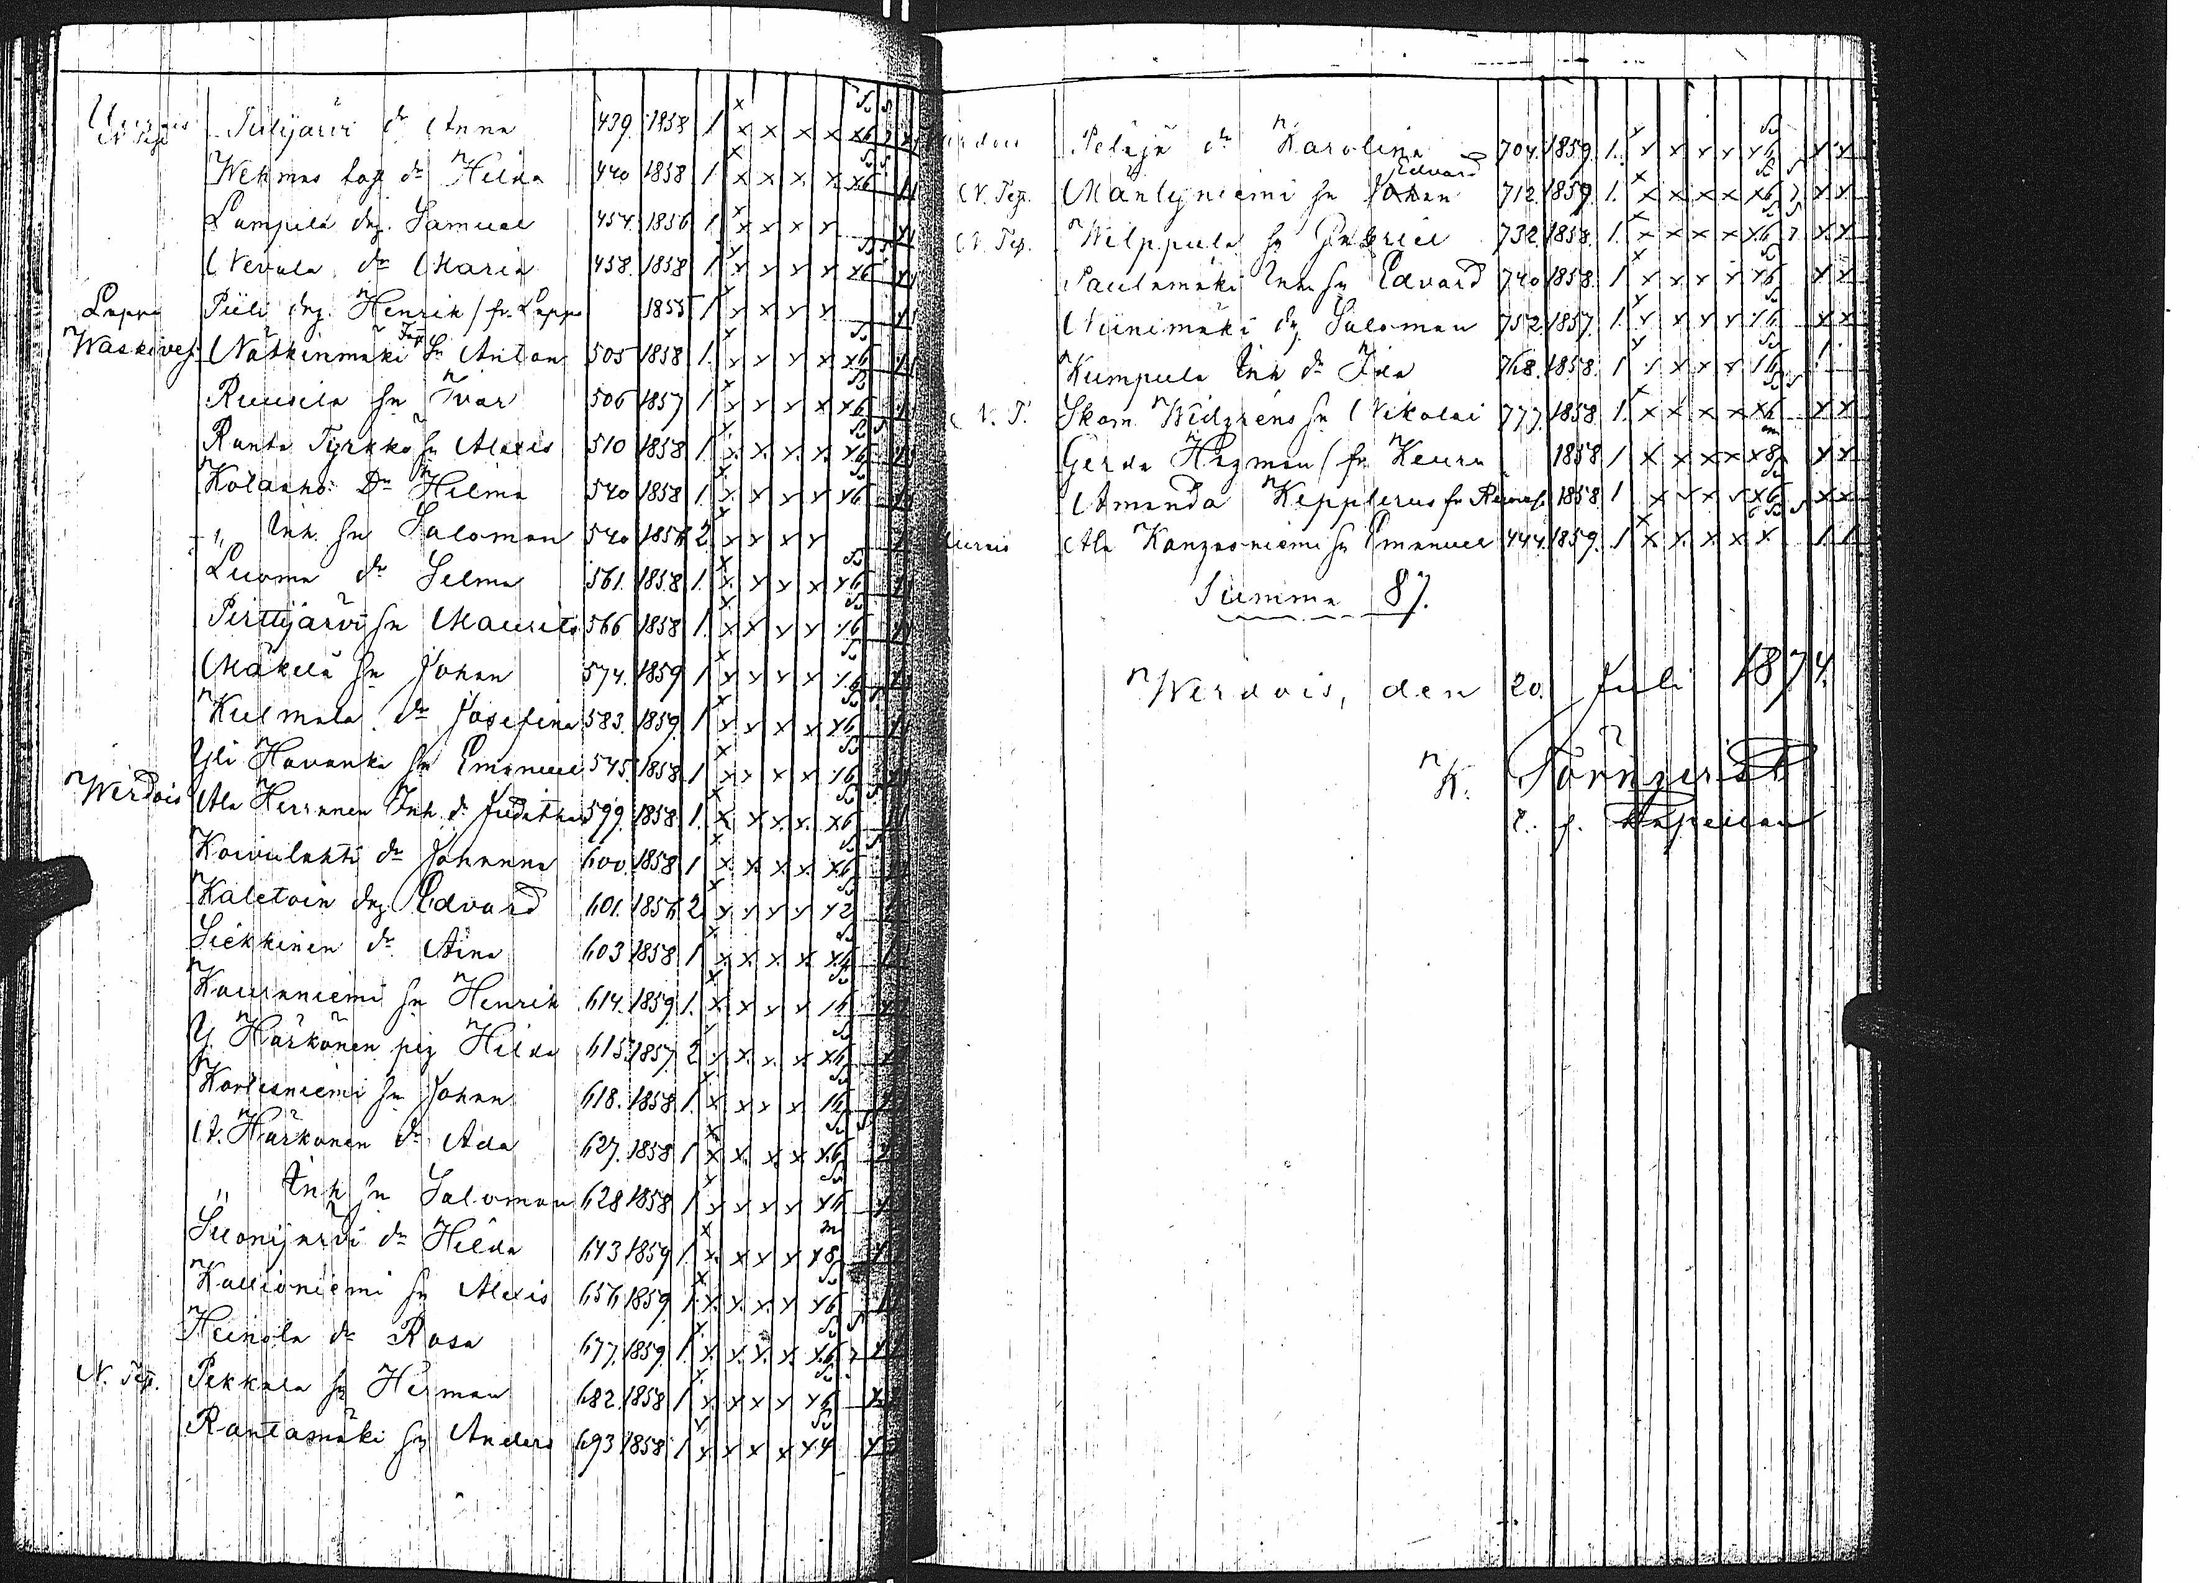 Uurais Piilijärvi dr Anna 439. 1858 1 x x x x x6
N. Tep.
Wehmas dr Hilda 440 1858 1 x x x x x6
Lampila drg. Samuel 454. 1856 1 x x x x
Nevala dr Maria 458. 1858 1 x x x x x6
Lappo Piili drg. Henrik / fr. Lappo 1855 1 x x x x
Waskivesi Natkinmäki sn Anton 505 1858 1. x x x x x6
Ruusila sn Ivar 506 1857 1 x x x x x6
Ranta Tyrkkö sn Alexis 510 1858 1. x x x x x6
Kolanko Dr Hilma 540 1858 1. x x x x x6
„ Inh. sn Salomon 540 1858 2 x x x x
Luoma dr Selma 561. 1858. 1. x x x x x6
Pirttijärvi sn Maurits 566 1858 1. x x x x x6
Mäkelä sn Johan 574. 1859 1 x x x x x6
Kulmala dr Josefina 583. 1859. 1 x x x x x6
Yli Havanka sn Emanuel 545. 1858 1 x x x x x6
Werdois Ala Herranen Inh. dr Judith 599. 1858 1. x x x x x6
Koivulahti dr Johanna 600. 1858 1 x x x x x6
Kaletoin drg. Edvard 601. 1856 2 x x x x x2
Siekkinen dr Aina 603 1858 1 x x x x x6
Kauraniemi sn Henrik 614. 1859. 1. x x x x x6
Y. Härkönen pig Hilda 615. 1857. 2 x x x x x6
Kortesniemi sn Johan 618. 1858 1. x x x x x6
A. Härkönen dr Ada 627. 1858 1 x x x x x6
„ Inh sn Salomon 628 1858 1 x x x x x6
Suonijärvi dr Hilda 643 1859 1. x x x x x8
Kallioniemi sn Alexis 656 1859 1. x x x x x6
Heinola dr Rosa 677. 1859. 1. x x x x x6
N. Tep. Pekkala sn Herman 682. 1858 1 x x x x x6
Rantamäki sn Anders 693 1858 1 x x x x x4
Peläjä dr Karolina 704. 1859. 1. x x x x x6 x x
Edvard
N. Tep. Mäntyniemi sn Johan 712. 1859. 1. x x x x x6 x x
N. Tep. Wilppula sn Gabriel 732. 1858. 1. x x x x x6 x x
Paulamäki Inh. sn Edvard 740 1858. 1 x x x x x6 x x
Niinimäki drg. Salomon 752. 1857. 1. x x x x x6 x x
Kumpula Inh dr Ida 768. 1858. 1 x x x x x6
N. T. Skom. Widgrens sn Nikolai 777. 1858 1. x x x x x6 x x
Gerda Hagman / fr. Keuru 1858 1 x x x x x8 x x
Amanda Kepplerus fr 1858. 1 x x x x x6 x x
Uurais Ala Kangasniemi sn Emanuel 444. 1859. 1 x x x x x
Summa 87.
Werdois, den 20. Juli 1874.
K. Törnqvist
v. p. Kapellan